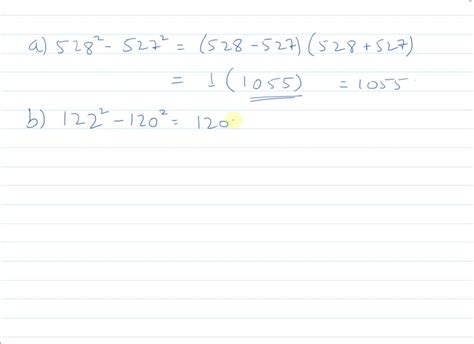 a) 528² - 527² = (528 - 527) (528 + 527)
= 1 (1055) = 1055
b) 122² - 120² = 120